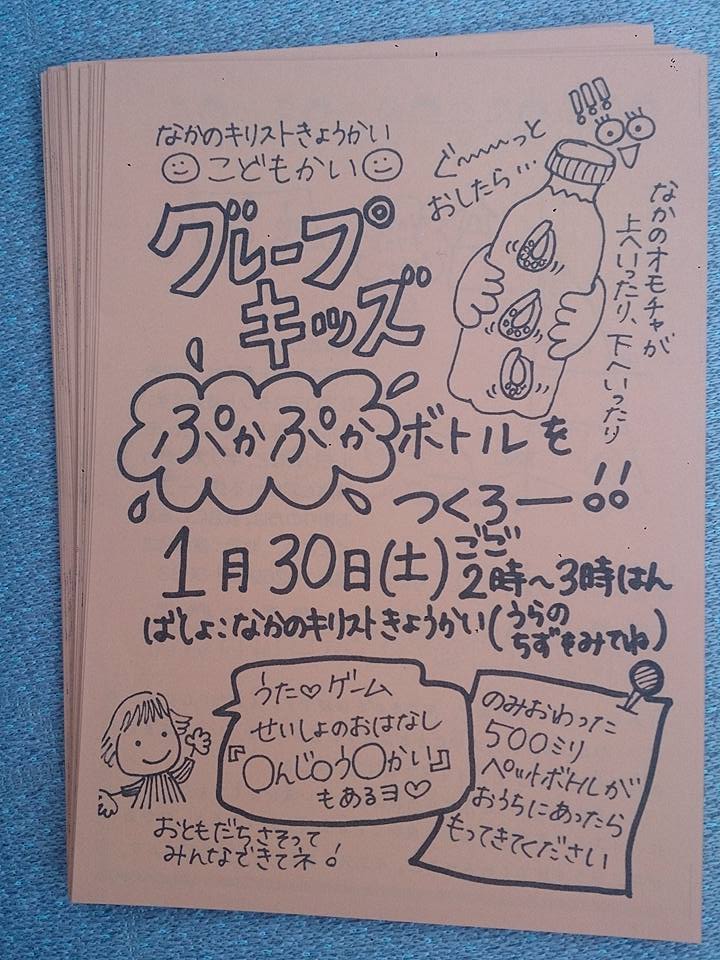 なかのキリストきょうかい
こどもかい
グレープ
キッズ
ぐ〜〜〜っと
おしたら…
!!!
なかのオモチャが
上へいったり、下へいったり
ぷかぷかボトルを
つくろー!!
1月30日(土)ごご2時〜3時はん
ばしょ:なかのキリストきょうかい(うらの
ちずをみてね)
うた♡ゲーム
せいしょのおはなし
『〇んじ〇う〇かい』
もあるヨ♡
おともだちさそって
みんなできてネ!
のみおわった
500ミリ
ペットボトルが
おうちにあったら
もってきてください